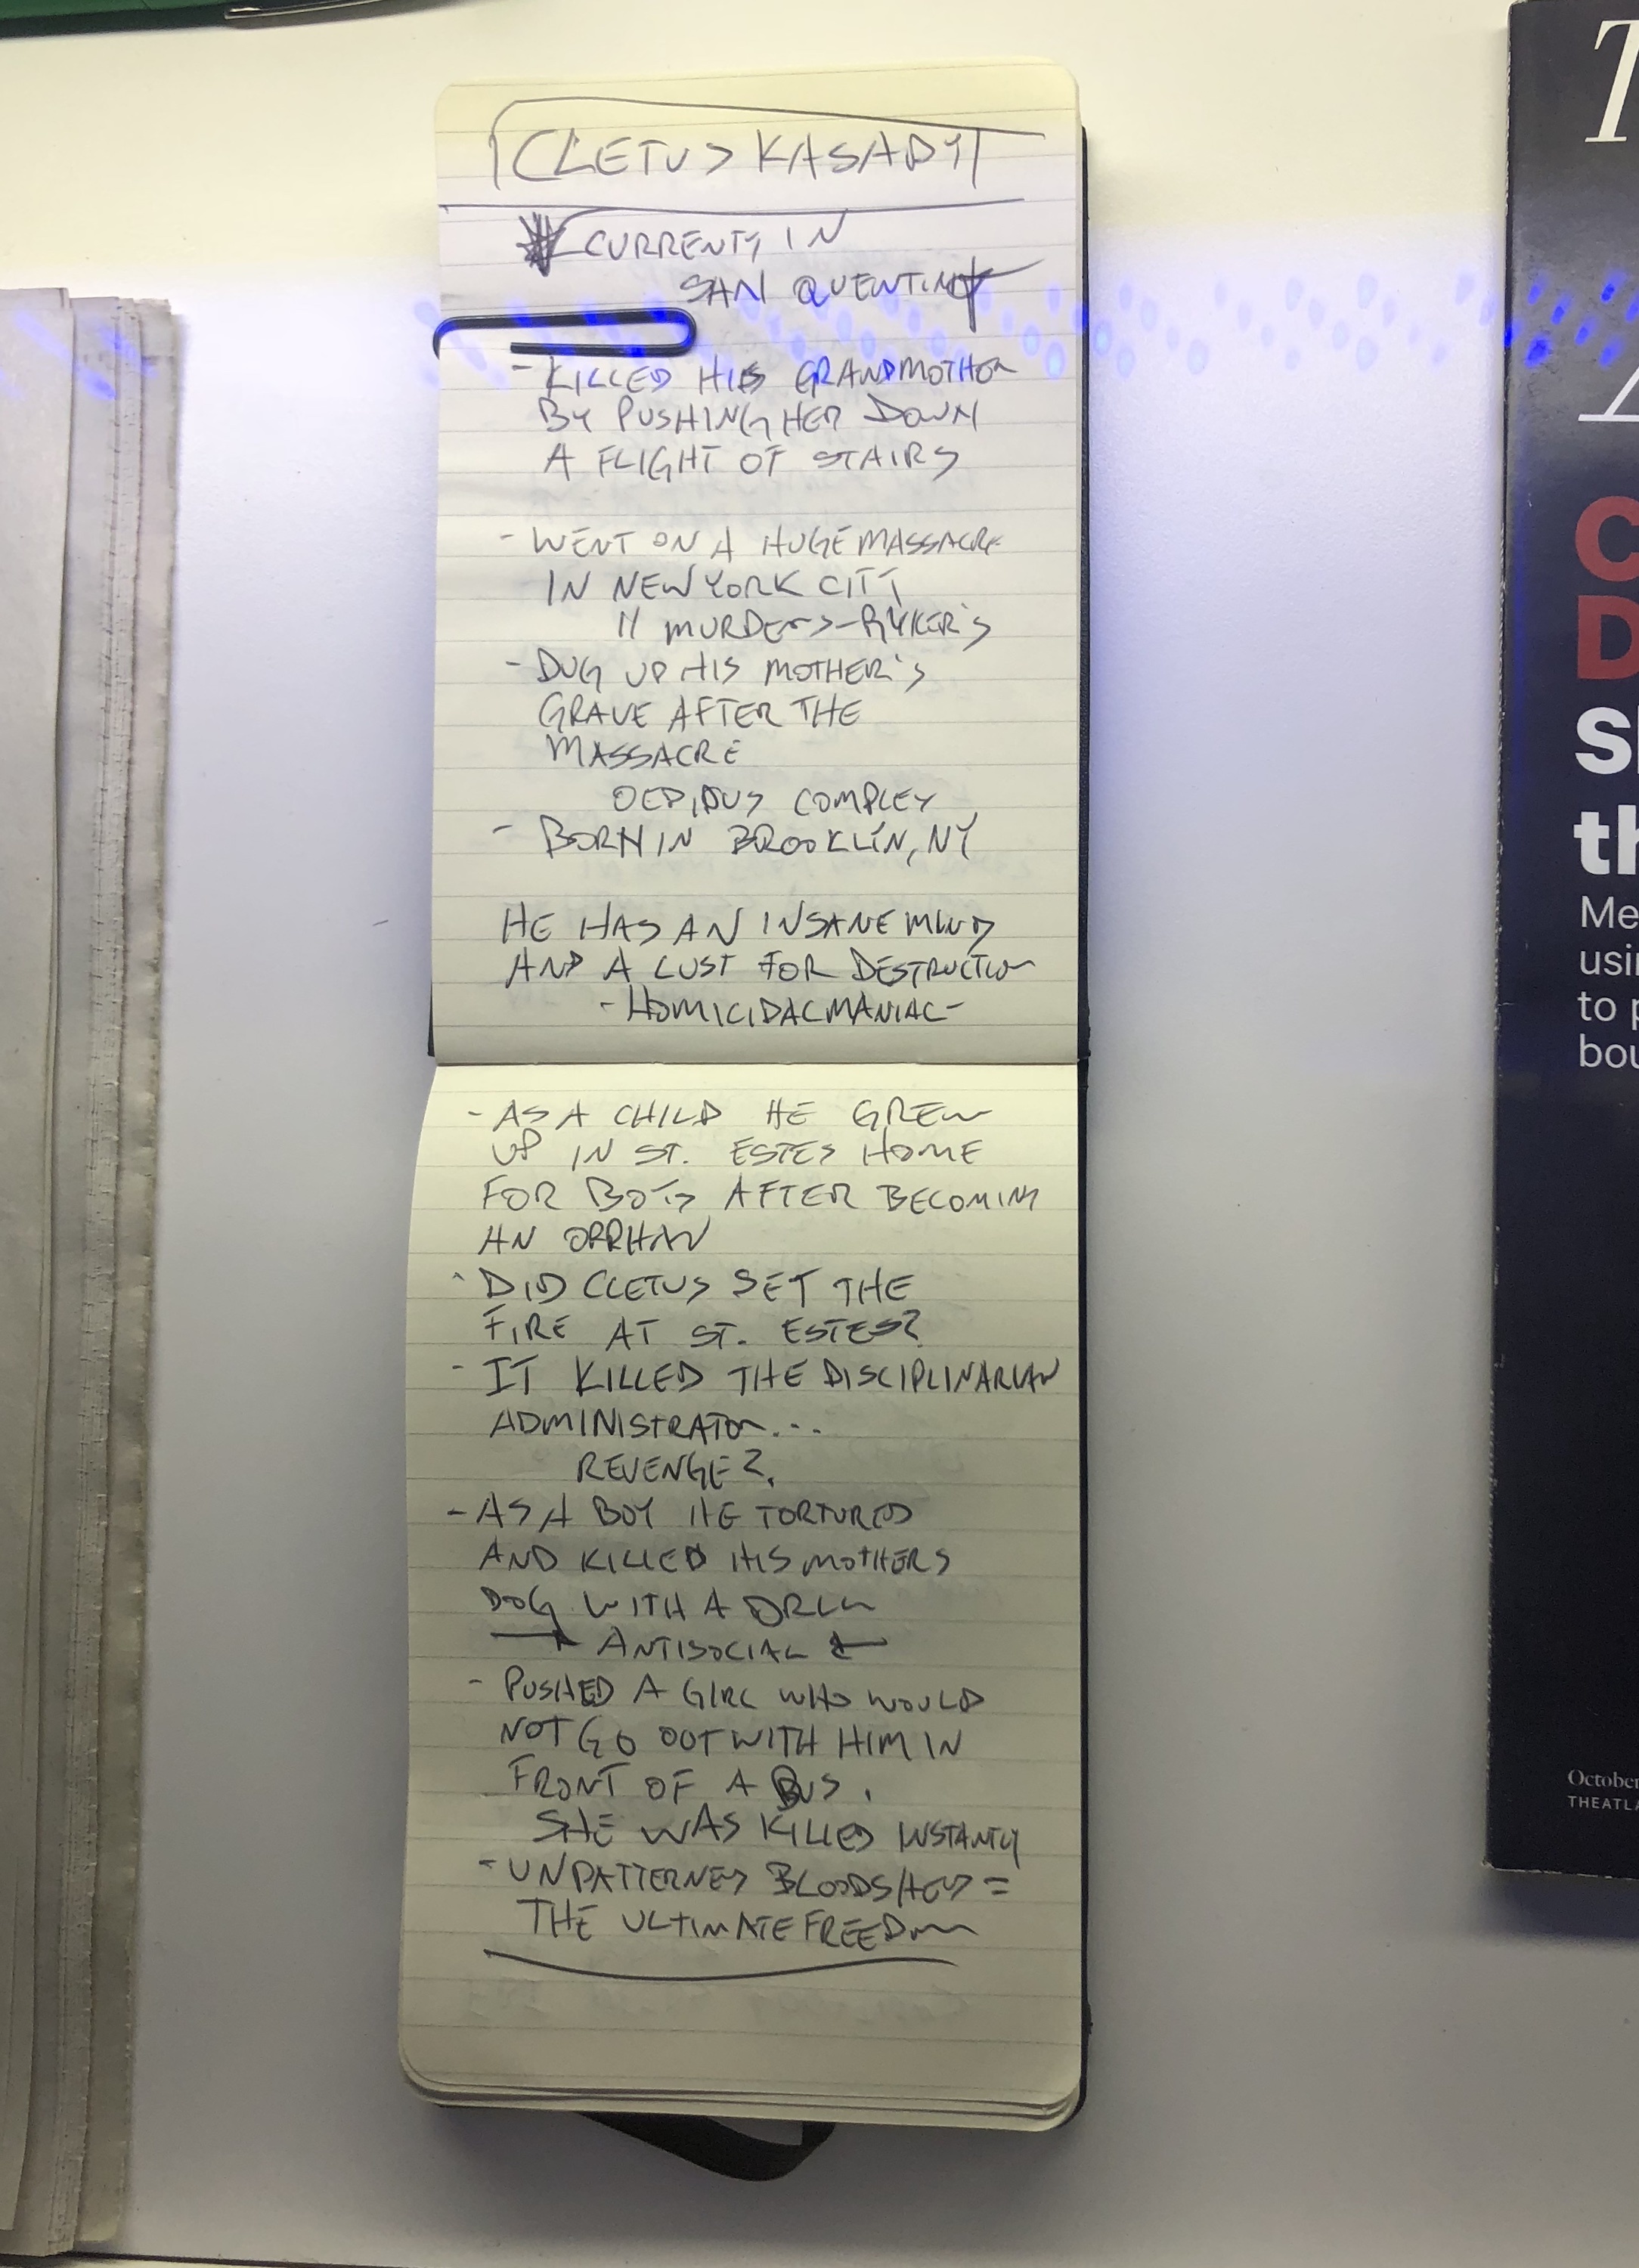 CLETUS KASADY
CURRENTY IN
SAN QUENTIN
- KILLED HIS GRANDMOTHER
BY PUSHING HER DOWN
A FLIGHT OF STAIRS
- WENT ON A HUGE MASSACRE
IN NEW YORK CITY
11 MURDERS - RYKER'S
- DUG UP HIS MOTHER'S
GRAVE AFTER THE
MASSACRE
OEDIPUS COMPLEX
- BORN IN BROOKLIN, NY
HE HAS AN INSANE MIND
AND A LUST FOR DESTRUCTION
- HOMICIDAL MANIAC -
- AS A CHILD HE GREW
UP IN ST. ESTES HOME
FOR BOYS AFTER BECOMING
AN ORPHAN
- DID CLETUS SET THE
FIRE AT ST. ESTES?
- IT KILLED THE DISCIPLINARIAN
ADMINISTRATOR...
REVENGE?
- AS A BOY HE TORTURED
AND KILLED HIS MOTHERS
DOG WITH A DRILL
→ ANTISOCIAL ←
- PUSHED A GIRL WHO WOULD
NOT GO OUT WITH HIM IN
FRONT OF A BUS.
SHE WAS KILLED INSTANTLY
- UNPATTERNED BLOODSHED =
THE ULTIMATE FREEDOM
T
C
D
th
Me
usi
to p
bou
October
THEATLA